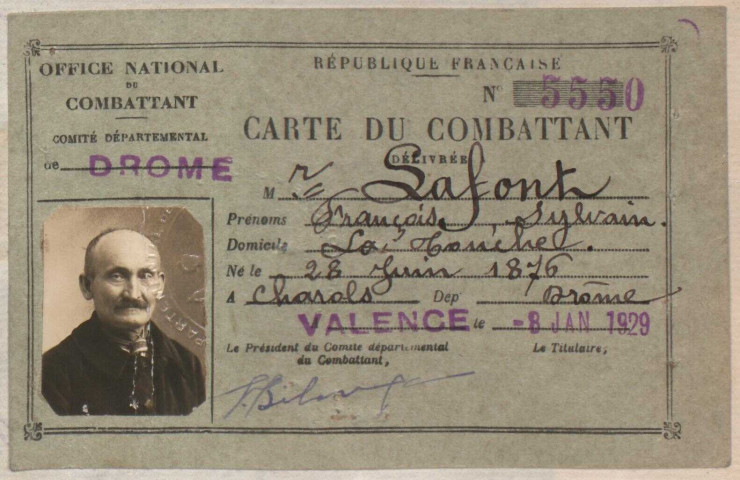 OFFICE NATIONAL
DU
COMBATTANT
COMITÉ DÉPARTEMENTAL
de DROME
RÉPUBLIQUE FRANÇAISE
N° 5550
CARTE DU COMBATTANT
DÉLIVRÉE
M r Lafont
Prénoms François, Sylvain.
Domicile La Touche.
Né le 28 Juin 1876
A Charols Dep Drôme
VALENCE le -8 JAN 1929
Le Président du Comité départemental
du Combattant,
Le Titulaire,